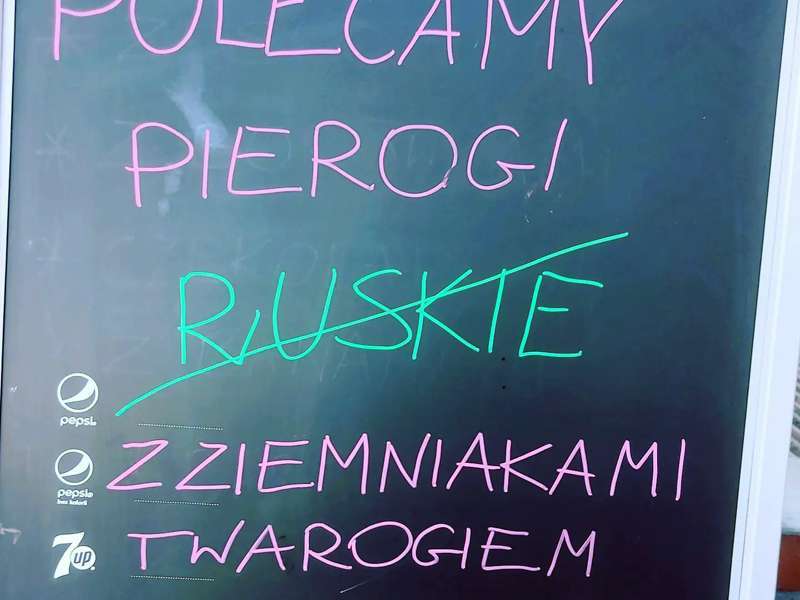 POLECAMY
PIEROGI
RUSKIE
pepsi
Z ZIEMNIAKAMI
pepsi
bez kalorii
TWAROGIEM
7up